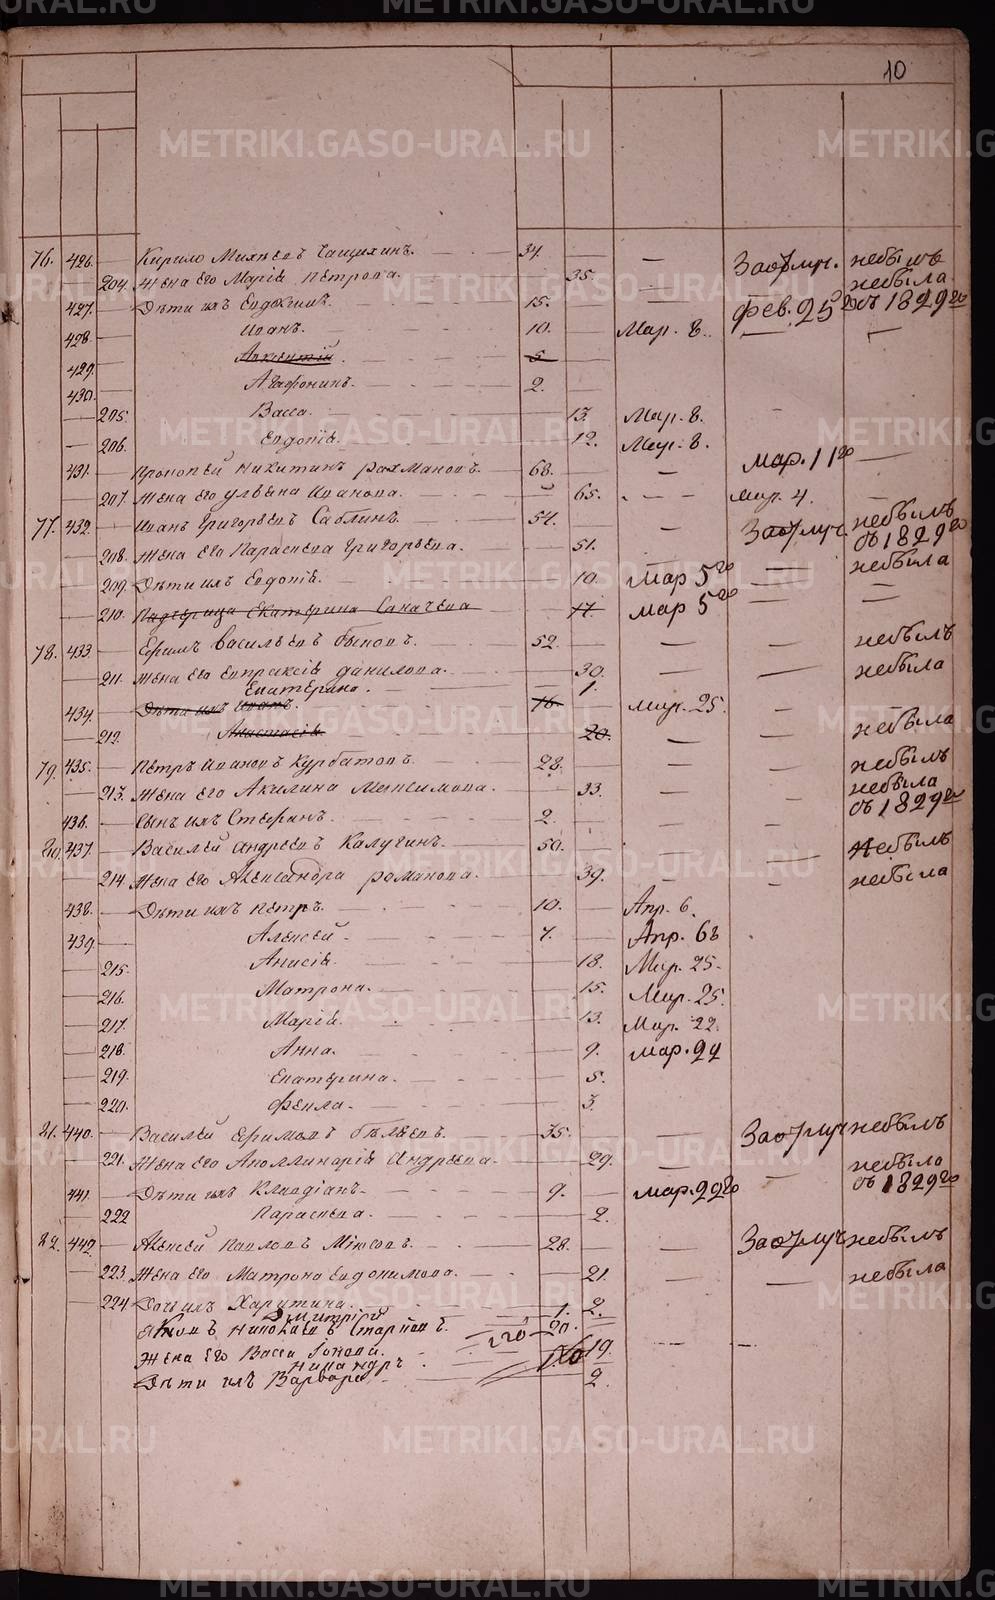 10
76. 426. Кирило Михѣевъ Чащихинъ. 34. За отлуч. небылъ
204. Жена его Марія Петрова. 35. небыла
427. Дѣти ихъ Евдокимъ. 15. фев. 25 го съ 1829 го
428. Иванъ. 10. Мар. 8.
429. Авксентій. 5
430. Агафоникъ. 2.
205. Васса. 13. Мар. 8.
206. Евдокія. 12. Мар. 8.
431. Прокопей Никитинъ Рахмановъ. 68. мар. 11 го
207. Жена его Ульяна Иванова. 65. мар. 4.
77. 432. Иванъ Григорьевъ Саблинъ. 54. За отлуч. небылъ съ 1829 го
208. Жена его Параскева Григорьева. 51. небыла
209. Дѣти ихъ Евдокія. 10. Мар 5 го
210. Падчерица Екатерина 17. мар 5 го
78. 433. Ефимъ Васильевъ Быковъ. 52. небылъ
211. Жена его Евпраксія Данилова. 30. небыла
Екатерина. 1.
434. Дѣти ихъ Иванъ. 16. мар. 25.
212. Анастасія 20. небыла
79. 435. Петръ Ивановъ Курбатовъ. 28. небылъ
213. Жена его Акилина Максимова. 33. небыла съ 1829 го
436. Сынъ ихъ Стефанъ. 2.
80. 437. Василей Андреевъ Калугинъ. 50. небылъ
214. Жена его Александра Романова. 39. небыла
438. Дѣти ихъ Петръ. 10. Апр. 6.
439. Алексей. 7. Апр. 6 ъ
215. Анисія. 18. Мар. 25.
216. Матрона. 15. Мар. 25.
217. Марія. 13. Мар. 22.
218. Анна. 9. мар. 24
219. Екатерина. 5.
220. Фекла. 3.
81. 440. Василей Ефимовъ Бѣляевъ. 35. За отлуч небылъ
221. Жена его Аполлинарія Андреева. 29. небыла
441. Дѣти ихъ Клавдіанъ. 9. мар. 22 го съ 1829 го
222 Параскева. 2.
82. 442. Алексей Павловъ 28. За отлуч небылъ
223. Жена его Матрона Евдокимова. 21. небыла
224. Дочь ихъ Харитина. 2.
Димитрій 1.
Яковъ Николаевъ 20.
Жена его Васса 19.
Никандръ
Дѣти ихъ Варвара 2.
METRIKI.GASO-URAL.RU